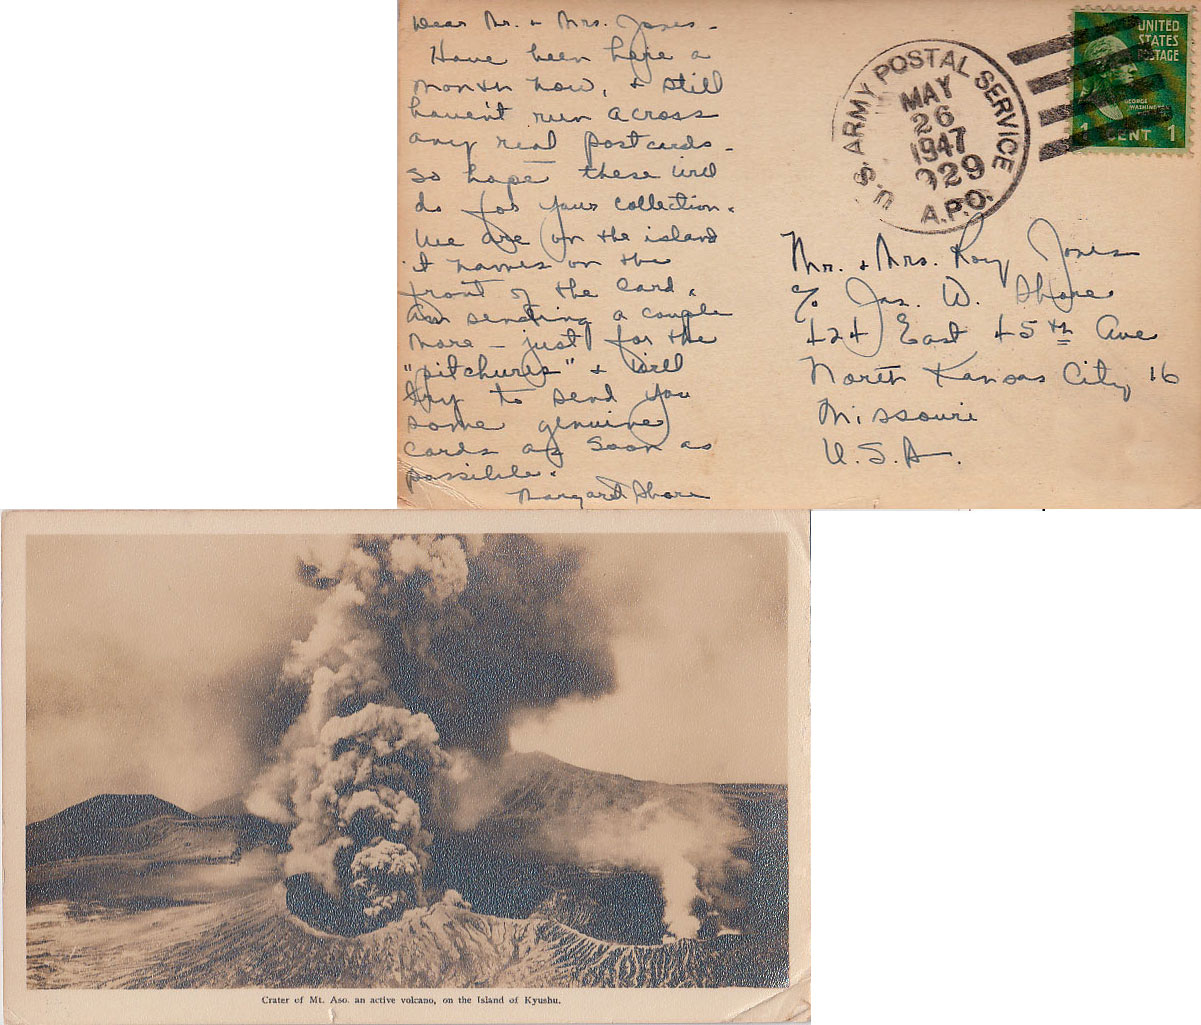 Dear Mr. + Mrs. Jones -
Have been here a
month now, + still
haven't run across
any real postcards -
so hope these will
do for your collection.
We are on the island
it names on the
front of the card.
Am sending a couple
more - just for the
"pitchures" + will
try to send you
some genuine
cards as soon as
possible.
Margaret Shore
U.S. ARMY POSTAL SERVICE
MAY
26
1947
929
A.P.O.
UNITED
STATES
POSTAGE
GEORGE
WASHINGTON
1 CENT 1
Mr. + Mrs. Roy Jones
c/o Jas. W. Shore
424 East 45th Ave
North Kansas City 16
Missouri
U.S.A.
Crater of Mt. Aso. an active volcano, on the Island of Kyushu.